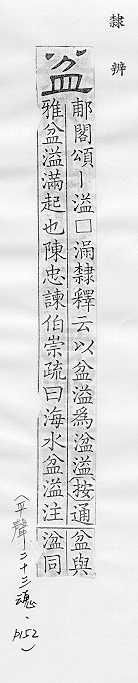 隸辨
盆
郙閣頌丨溢□漏隸釋云以盆溢為湓溢按通
雅盆溢滿起也陳忠諫伯崇疏曰海水盆溢注
盆與
湓同
(平聲二十三魂、P152)